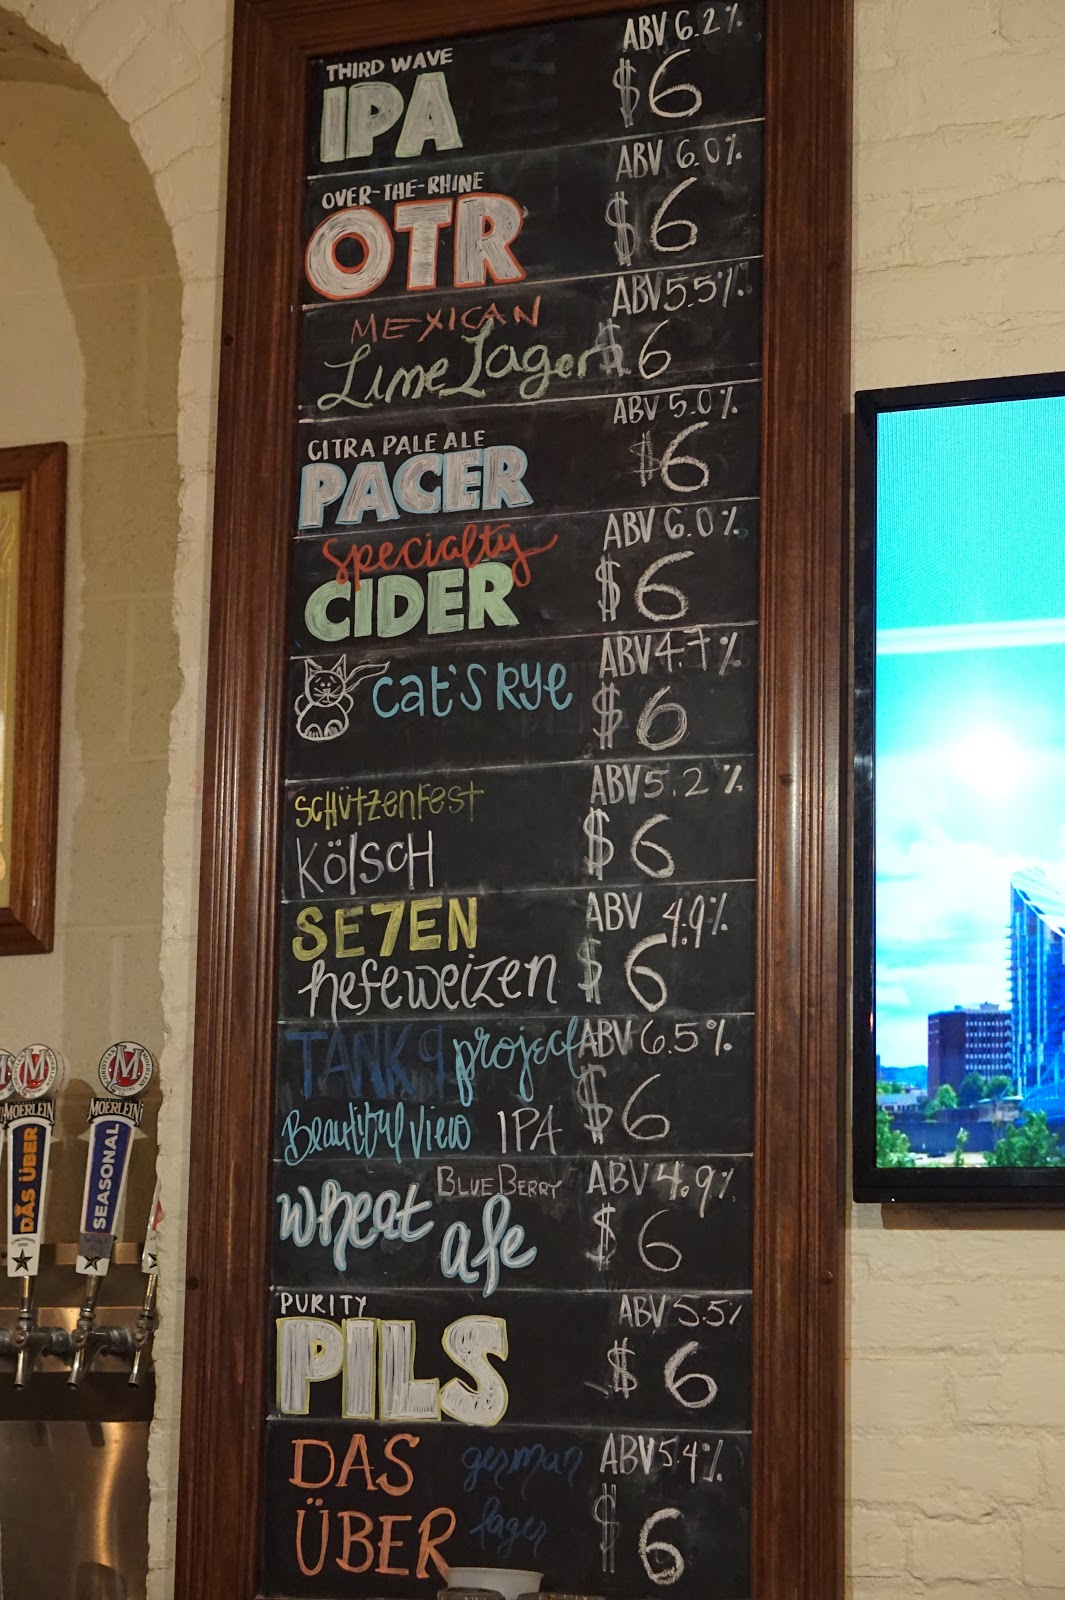 THIRD WAVE
IPA
ABV 6.2%
$6
OVER-THE-RHINE
OTR
ABV 6.0%
$6
MEXICAN
Lime Lager
ABV 5.5%
$6
CITRA PALE ALE
PACER
ABV 5.0%
$6
Specialty
CIDER
ABV 6.0%
$6
Cat's Rye
ABV 4.7%
$6
SCHÜTZENFEST
KÖLSCH
ABV 5.2%
$6
SE7EN
hefeweizen
ABV 4.9%
$6
TANK 9 project
Beautiful View IPA
ABV 6.5%
$6
BLUEBERRY
wheat ale
ABV 4.9%
$6
PURITY
PILS
ABV 5.5%
$6
DAS german
ÜBER lager
ABV 5.4%
$6
M
M
MOERLEIN
MOERLEIN
DAS ÜBER
SEASONAL